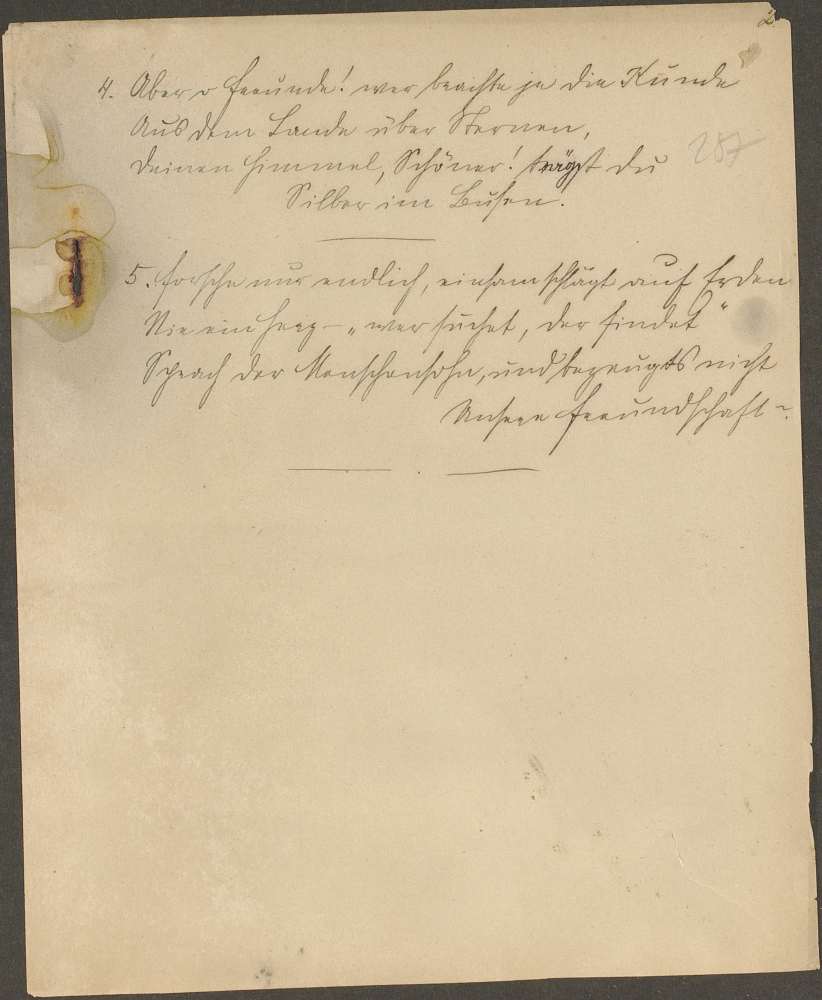 2
4. Aber o Freunde! wer brachte je die Kunde
Aus dem Lande über Sternen,
Deinen Himmel, Schöner! trägst du
Silber im Busen!
287
5. Forsche nur endlich, einsam schlägt auf Erden
Nie ein Herz – „wer suchet, der findet“
Sprach der Menschensohn, und bezeugts nicht
Unsere Freundschaft ?